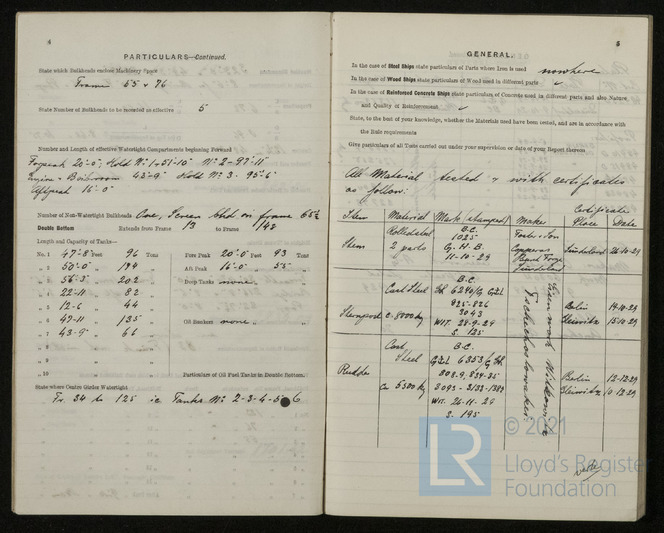 4
PARTICULARS—Continued.
State which Bulkheads enclose Machinery Space
Frame 55 & 76
State Number of Bulkheads to be recorded as effective 5
Number and Length of effective Watertight Compartments beginning Forward
Forepeak 20'-0" Hold No 1 51'-10" No 2 - 97'-11"
Engine & Boilerroom 43'-9" Hold No 3. 95'-6"
Aftpeak 16'-0"
Number of Non-Watertight Bulkheads One, Screen bhd on frame 65½
Double Bottom Extends from Frame 13 to Frame 142
Length and Capacity of Tanks—
No. 1 47'-8" Feet 96 Tons Fore Peak 20'-0" Feet 93 Tons
" 2 50'-0" " 194 Aft Peak 16'-0" " 55 "
" 3 56'-3" 202 Deep Tanks none "
" 4 22'-11" 82
" 5 12'-6" 44
" 6 47'-11" 135 Oil Bunkers none "
" 7 43'-9" 66
" 8
" 9
" 10 Particulars of Oil Fuel Tanks in Double Bottom.
State where Centre Girder Watertight
Fr. 34 to 125 ie Tanks No 2-3-4-5 6
5
GENERAL.
In the case of Steel Ships state particulars of Parts where Iron is used nowhere
In the case of Wood Ships state particulars of Wood used in different parts
In the case of Reinforced Concrete Ships state particulars of Concrete used in different parts and also Nature
and Quality of Reinforcement
State, to the best of your knowledge, whether the Materials used have been tested, and are in accordance with
the Rule requirements
Give particulars of all Tests carried out under your supervision or date of your Report thereon
All Material tested & with certificates
as follow:
Certificate
Item Material Mark (stamped) Maker Place Date
Stem Rolled steel 2 parts B.C. 1025 G.H.B. 11-10-29 Forge Sunderland Sunderland 26-10-29
Sternpost Cast Steel c. 8000 kg B.C. 825-826 3043 WIT. 28-9-29 S. 125 Eisenwerk Witkowitz Tschechoslowakei Berlin 19-10-29 Gleiwitz 15-10-29
Rudder Cast Steel Ca 5300 kg B.C. WIT. 26-11-29 S. 195 Berlin 12-12-29 Gleiwitz 10-12-29
LR
© 2021
Lloyd's Register
Foundation